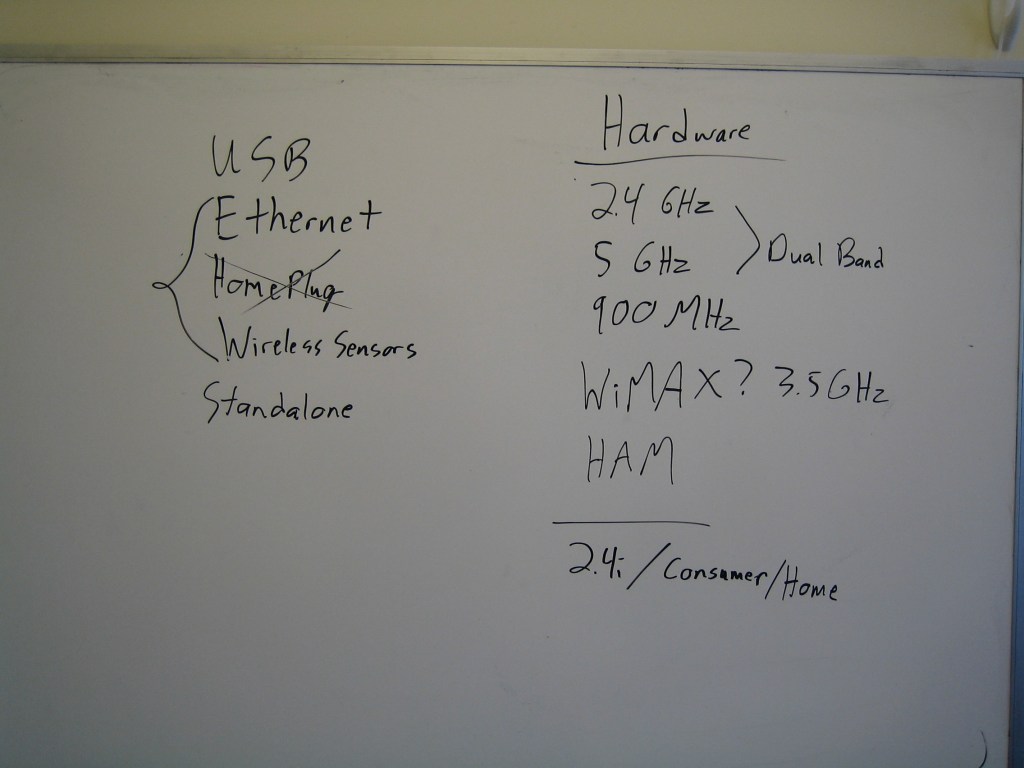 USB
Ethernet
HomePlug
Wireless Sensors
Standalone
Hardware
2.4 GHz
5 GHz
Dual Band
900 MHz
WiMAX? 3.5GHz
HAM
2.4i/Consumer/Home